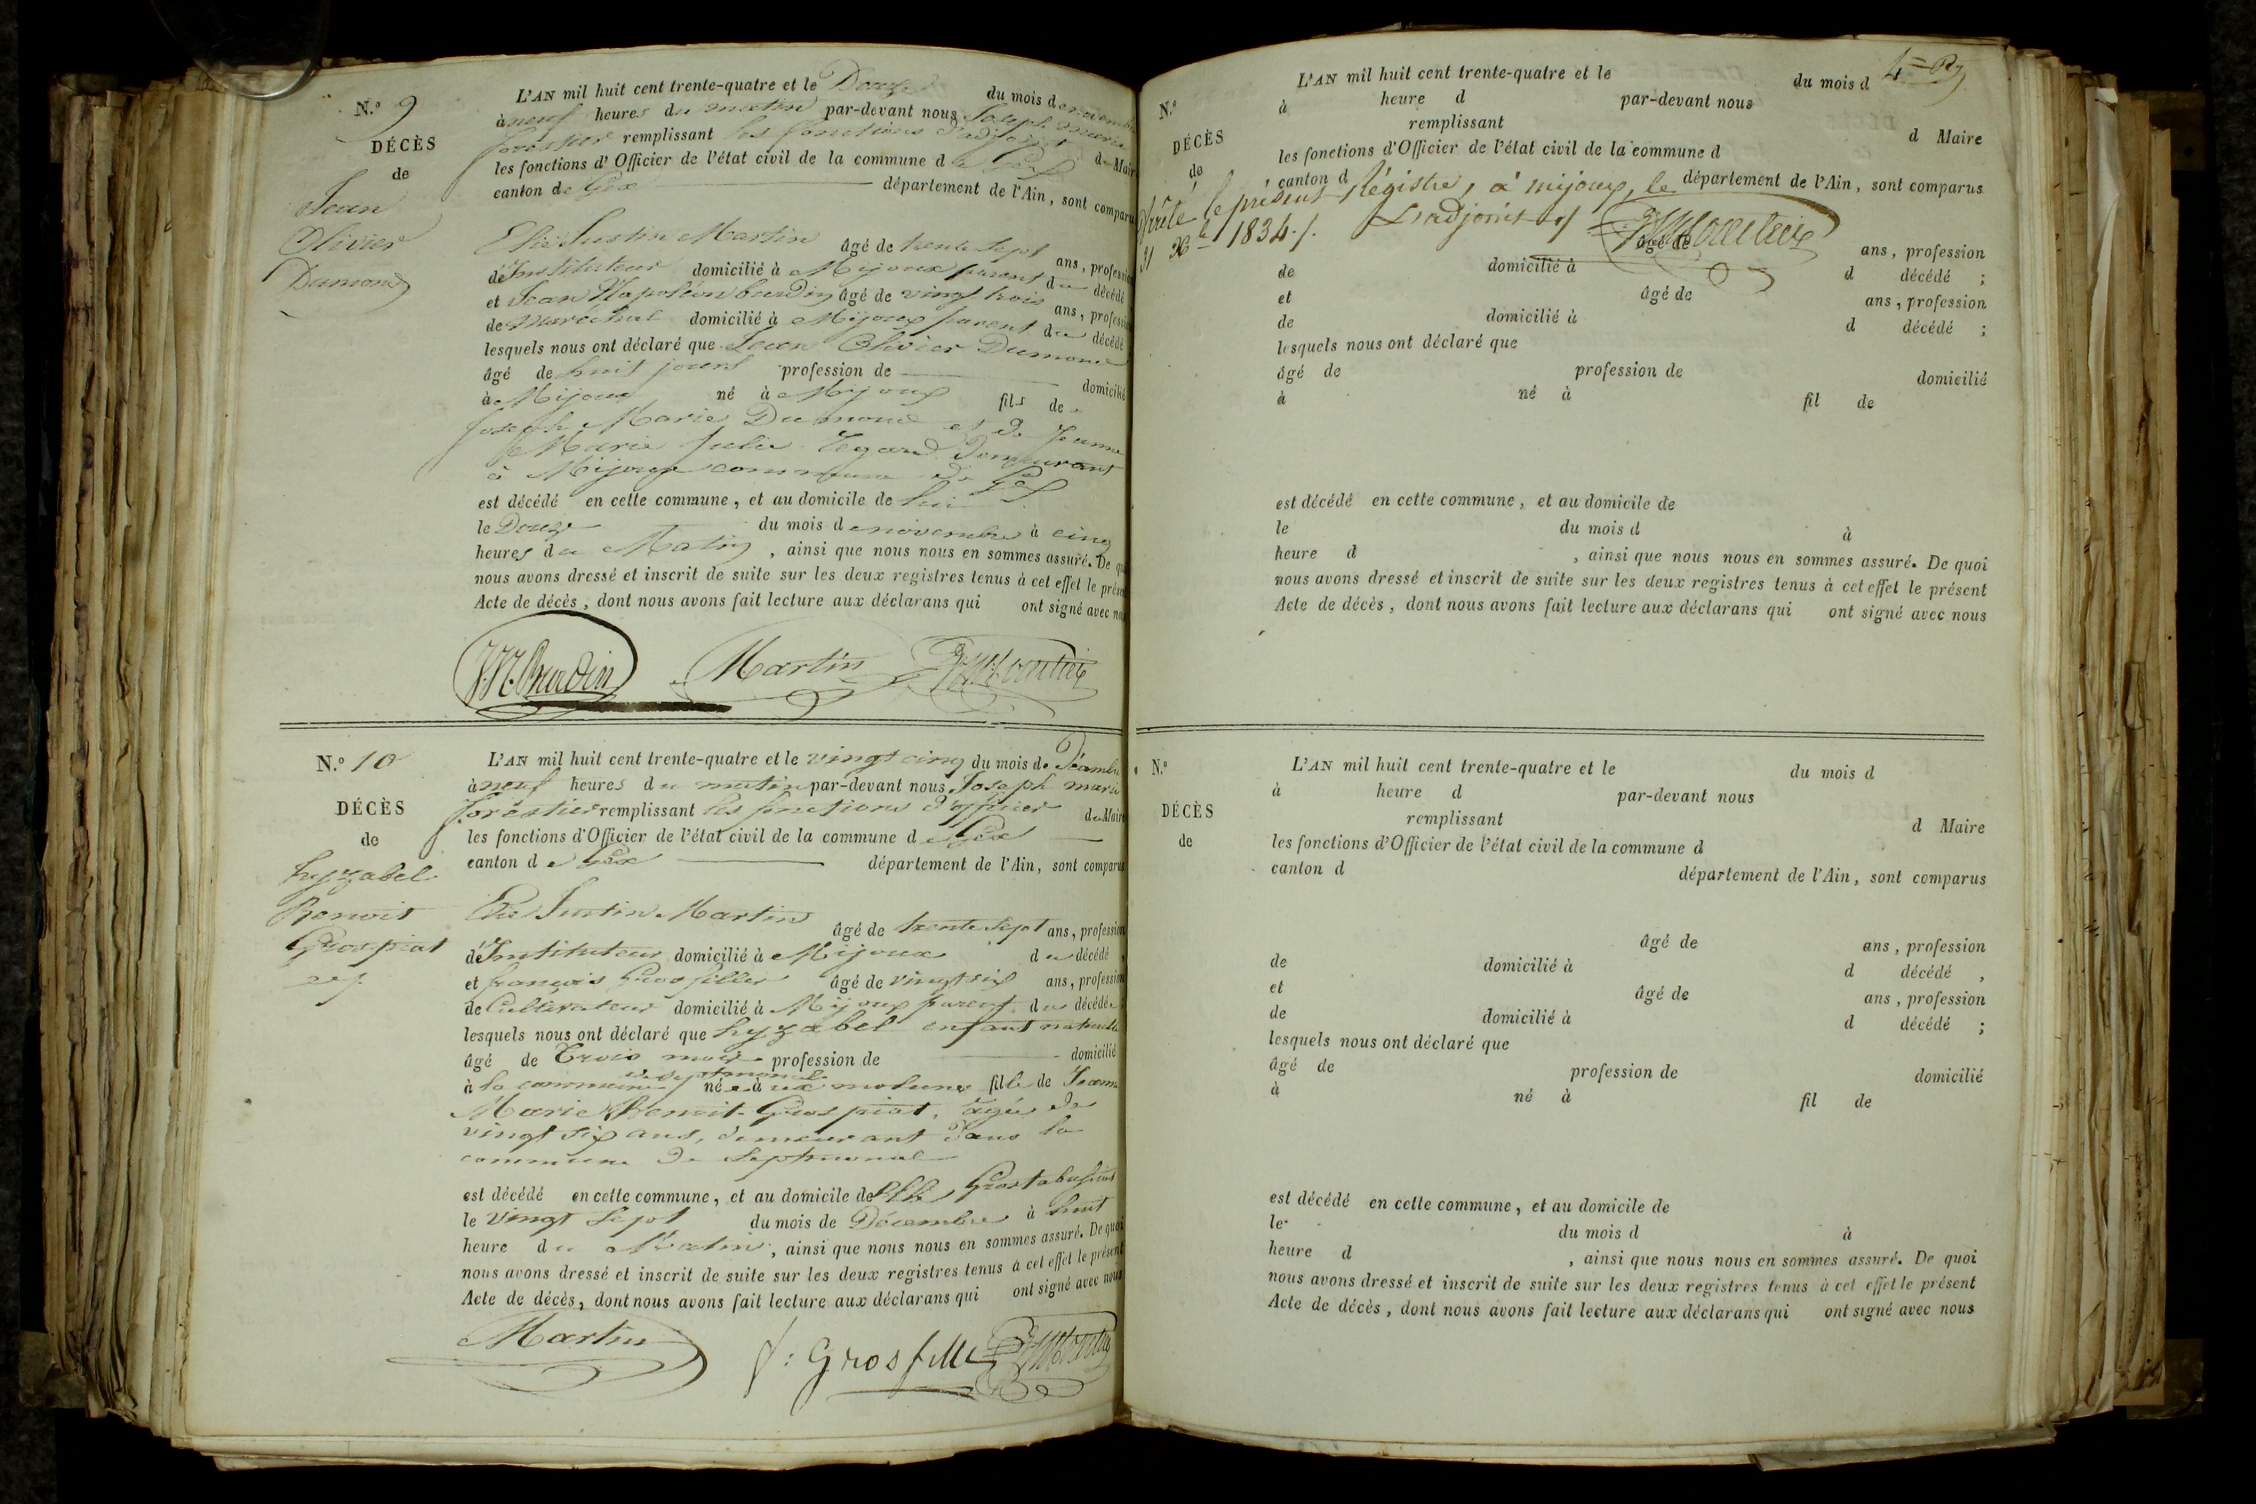 N.º 9
DÉCÈS
de
Jean
Olivier
Dumond
L'AN mil huit cent trente-quatre et le Douze du mois de novembre
à neuf heures du matin par-devant nous Joseph marie
forestier remplissant les fonctions d'adjoint du Maire
les fonctions d'Officier de l'état civil de la commune de Gex
canton de Gex département de l'Ain, sont comparus
Elie Justin Martin âgé de trente sept ans, profession
d'Instituteur domicilié à Mijoux parent du décédé
et Jean Napoléon burdin âgé de vingt trois ans, profession
de maréchal domicilié à Mijoux parent du décédé
lesquels nous ont déclaré que Jean Olivier Dumond
âgé de huit jours profession de domicilié
à Mijoux né à Mijoux fils de
Joseph Marie Dumond et de Jeanne
Marie Julie demeurant
à Mijoux commune de Gex
est décédé en cette commune, et au domicile de lui
le Douze du mois de novembre à cinq
heures du Matin, ainsi que nous nous en sommes assuré. De quoi
nous avons dressé et inscrit de suite sur les deux registres tenus à cet effet le présent
Acte de décès, dont nous avons fait lecture aux déclarans qui ont signé avec nous
J. N. Burdin Martin
N.º 10
DÉCÈS
de
hyzabel
Benoit
Grospiat
L'AN mil huit cent trente-quatre et le vingt cinq du mois de Décembre
à neuf heures du matin par-devant nous Joseph marie
forestier remplissant les fonctions d'officier du Maire
les fonctions d'Officier de l'état civil de la commune de Gex
canton de Gex département de l'Ain, sont comparus
Elie Justin Martin âgé de trente sept ans, profession
d'Instituteur domicilié à Mijoux du décédé
et françois Grosfilley âgé de vingt six ans, profession
de Cultivateur domicilié à Mijoux parent du décédé
lesquels nous ont déclaré que hyzabel enfant naturelle
âgé de Trois mois profession de domicilié
de Septmoncel
à la commune née à aux molunes fille de Jeanne
Marie Benoit Grospiat, âgée de
vingt six ans, demeurant dans la
commune de Septmoncel
est décédé en cette commune, et au domicile de
le vingt Sept du mois de Décembre à huit
heure du Matin, ainsi que nous nous en sommes assuré. De quoi
nous avons dressé et inscrit de suite sur les deux registres tenus à cet effet le présent
Acte de décès, dont nous avons fait lecture aux déclarans qui ont signé avec nous
Martin f: Grosfille
N.º
DÉCÈS
de
L'AN mil huit cent trente-quatre et le du mois d
à heure d par-devant nous
remplissant d Maire
les fonctions d'Officier de l'état civil de la commune d
canton d département de l'Ain, sont comparus
le présent Régistre, à mijoux, le
31 Xbre 1834 ./. L'adjoint
âgé de ans, profession
de domicilié à d décédé ;
et âgé de ans, profession
de domicilié à d décédé ;
lesquels nous ont déclaré que
âgé de profession de domicilié
à né à fil de
est décédé en cette commune, et au domicile de
le du mois d à
heure d , ainsi que nous nous en sommes assuré. De quoi
nous avons dressé et inscrit de suite sur les deux registres tenus à cet effet le présent
Acte de décès, dont nous avons fait lecture aux déclarans qui ont signé avec nous
N.º
DÉCÈS
de
L'AN mil huit cent trente-quatre et le du mois d
à heure d par-devant nous
remplissant d Maire
les fonctions d'Officier de l'état civil de la commune d
canton d département de l'Ain, sont comparus
âgé de ans, profession
de domicilié à d décédé ,
et âgé de ans, profession
de domicilié à d décédé ;
lesquels nous ont déclaré que
âgé de profession de domicilié
à né à fil de
est décédé en cette commune, et au domicile de
le du mois d à
heure d , ainsi que nous nous en sommes assuré. De quoi
nous avons dressé et inscrit de suite sur les deux registres tenus à cet effet le présent
Acte de décès, dont nous avons fait lecture aux déclarans qui ont signé avec nous